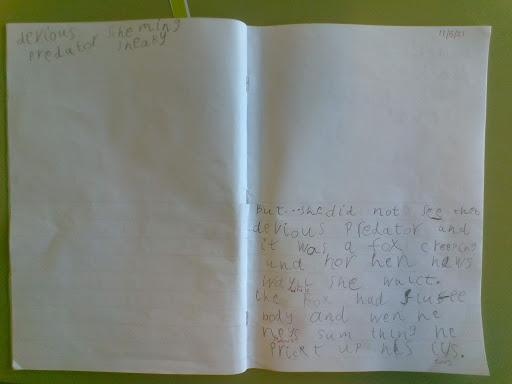 devious sheming
predator sneaky
11/5/21
But...she did not see the
devious predator and
it was a fox creeping
und hor hen
she walct.
the fox had flufee
body and wen he
sum thing he
prickt up his